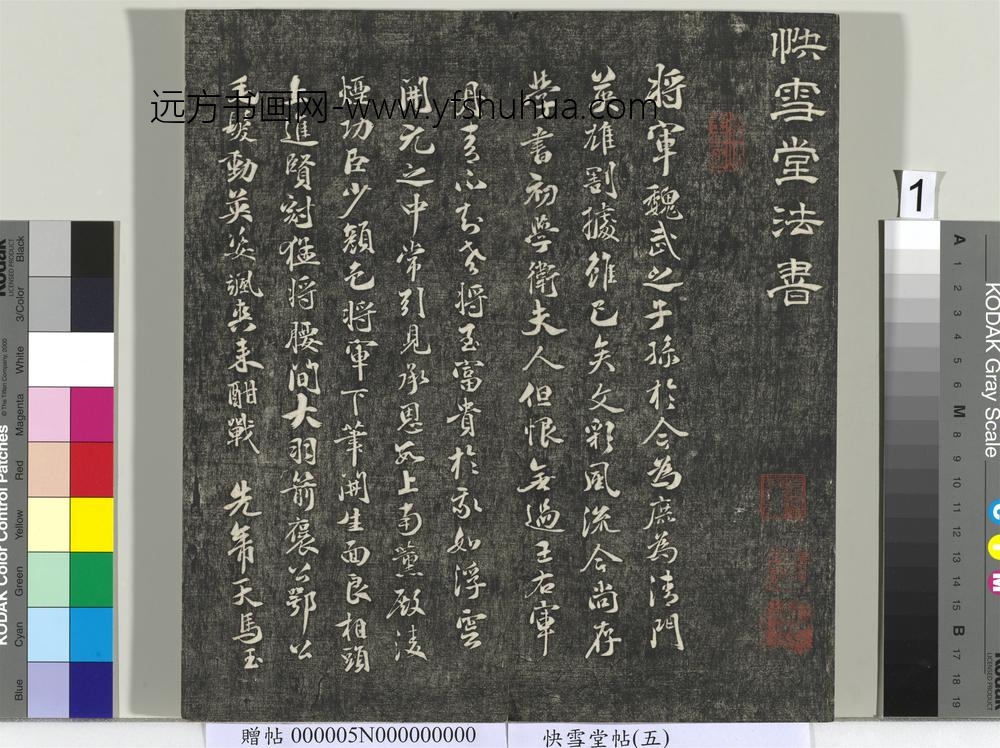 快雪堂法書
將軍魏武之子孫於今為庶為清門
英雄割據雖已矣文彩風流今尚存
學書初學衛夫人但恨無過王右軍
丹青不知老將至富貴於我如浮雲
開元之中常引見承恩數上南薰殿淩
煙功臣少顏色將軍下筆開生面良相頭
上進賢冠猛將腰間大羽箭褒公鄂公
毛髮動英姿颯爽来酣戰 先帝天馬玉
远方书画网-www.yfshuhua.com
1
贈帖 000005N000000000
快雪堂帖(五)
KODAK Color Control Patches
Kodak
LICENSED PRODUCT
© The Tiffen Company, 2000
Blue
Cyan
Green
Yellow
Red
Magenta
White
3/Color
Black
KODAK Gray Scale
A 1 2 3 4 5 6 M 8 9 10 11 12 13 14 15 B 17 18 19
C
Y
M
Kodak
LICENSED PRODUCT